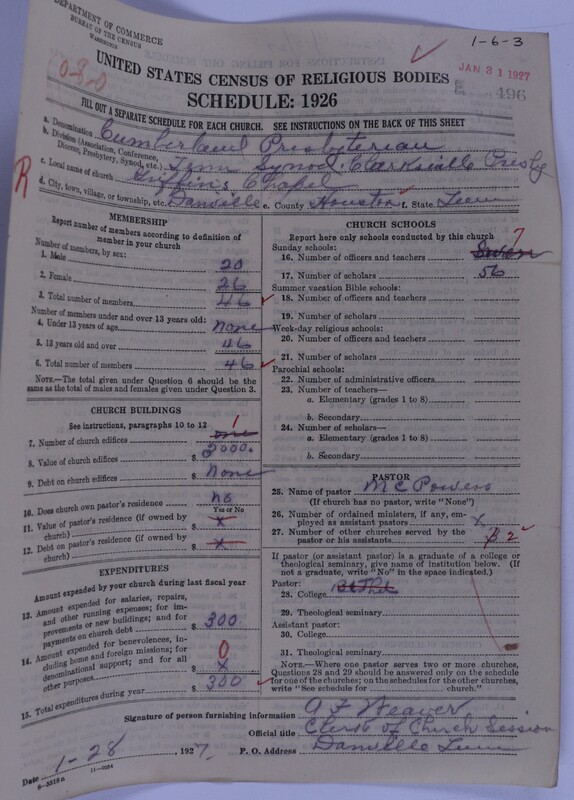 DEPARTMENT OF COMMERCE
BUREAU OF THE CENSUS
WASHINGTON
1-6-3
0-8-0
JAN 31 1927
496
UNITED STATES CENSUS OF RELIGIOUS BODIES
SCHEDULE: 1926
FILL OUT A SEPARATE SCHEDULE FOR EACH CHURCH. SEE INSTRUCTIONS ON THE BACK OF THIS SHEET
a. Denomination Cumberland Presbyterian
b. Division (Association, Conference, Diocese, Presbytery, Synod, etc.) Tenn Synod. Clarksville Presby
c. Local name of church Griffin's Chapel
d. City, town, village, or township, etc. Danville e. County Houston f. State Tenn
R
MEMBERSHIP
Report number of members according to definition of member in your church
Number of members, by sex:
1. Male 20
2. Female 26
3. Total number of members 46
Number of members under and over 13 years old:
4. Under 13 years of age None
5. 13 years old and over 46
6. Total number of members 46
NOTE.—The total given under Question 6 should be the same as the total of males and females given under Question 3.
CHURCH BUILDINGS
See instructions, paragraphs 10 to 12
7. Number of church edifices one 1
8. Value of church edifices $ 2000.
9. Debt on church edifices $ None
10. Does church own pastor's residence no
Yes or No
11. Value of pastor's residence (if owned by church) $ x
12. Debt on pastor's residence (if owned by church) $ x
EXPENDITURES
Amount expended by your church during last fiscal year
13. Amount expended for salaries, repairs, and other running expenses; for improvements or new buildings; and for payments on church debt $ 300.
14. Amount expended for benevolences, including home and foreign missions; for denominational support; and for all other purposes $ x 0
15. Total expenditures during year $ 300
CHURCH SCHOOLS
Report here only schools conducted by this church
Sunday schools:
16. Number of officers and teachers Seven 7
17. Number of scholars 56
Summer vacation Bible schools:
18. Number of officers and teachers
19. Number of scholars
Week-day religious schools:
20. Number of officers and teachers
21. Number of scholars
Parochial schools:
22. Number of administrative officers
23. Number of teachers—
a. Elementary (grades 1 to 8)
b. Secondary
24. Number of scholars—
a. Elementary (grades 1 to 8)
b. Secondary
PASTOR
25. Name of pastor M C Powers
(If church has no pastor, write "None")
26. Number of ordained ministers, if any, employed as assistant pastors x
27. Number of other churches served by the pastor or his assistants 2
If pastor (or assistant pastor) is a graduate of a college or theological seminary, give name of institution below. (If not a graduate, write "No" in the space indicated.)
Pastor:
28. College Bethel
29. Theological seminary
Assistant pastor:
30. College
31. Theological seminary
NOTE.—Where one pastor serves two or more churches, Questions 28 and 29 should be answered only on the schedule for one of the churches; on the schedules for the other churches, write "See schedule for church."
Signature of person furnishing information A F Weaver
Official title Clerk of Church Session
Date 1-28, 1927. P. O. Address Danville Tenn
8-5318a 11-9034